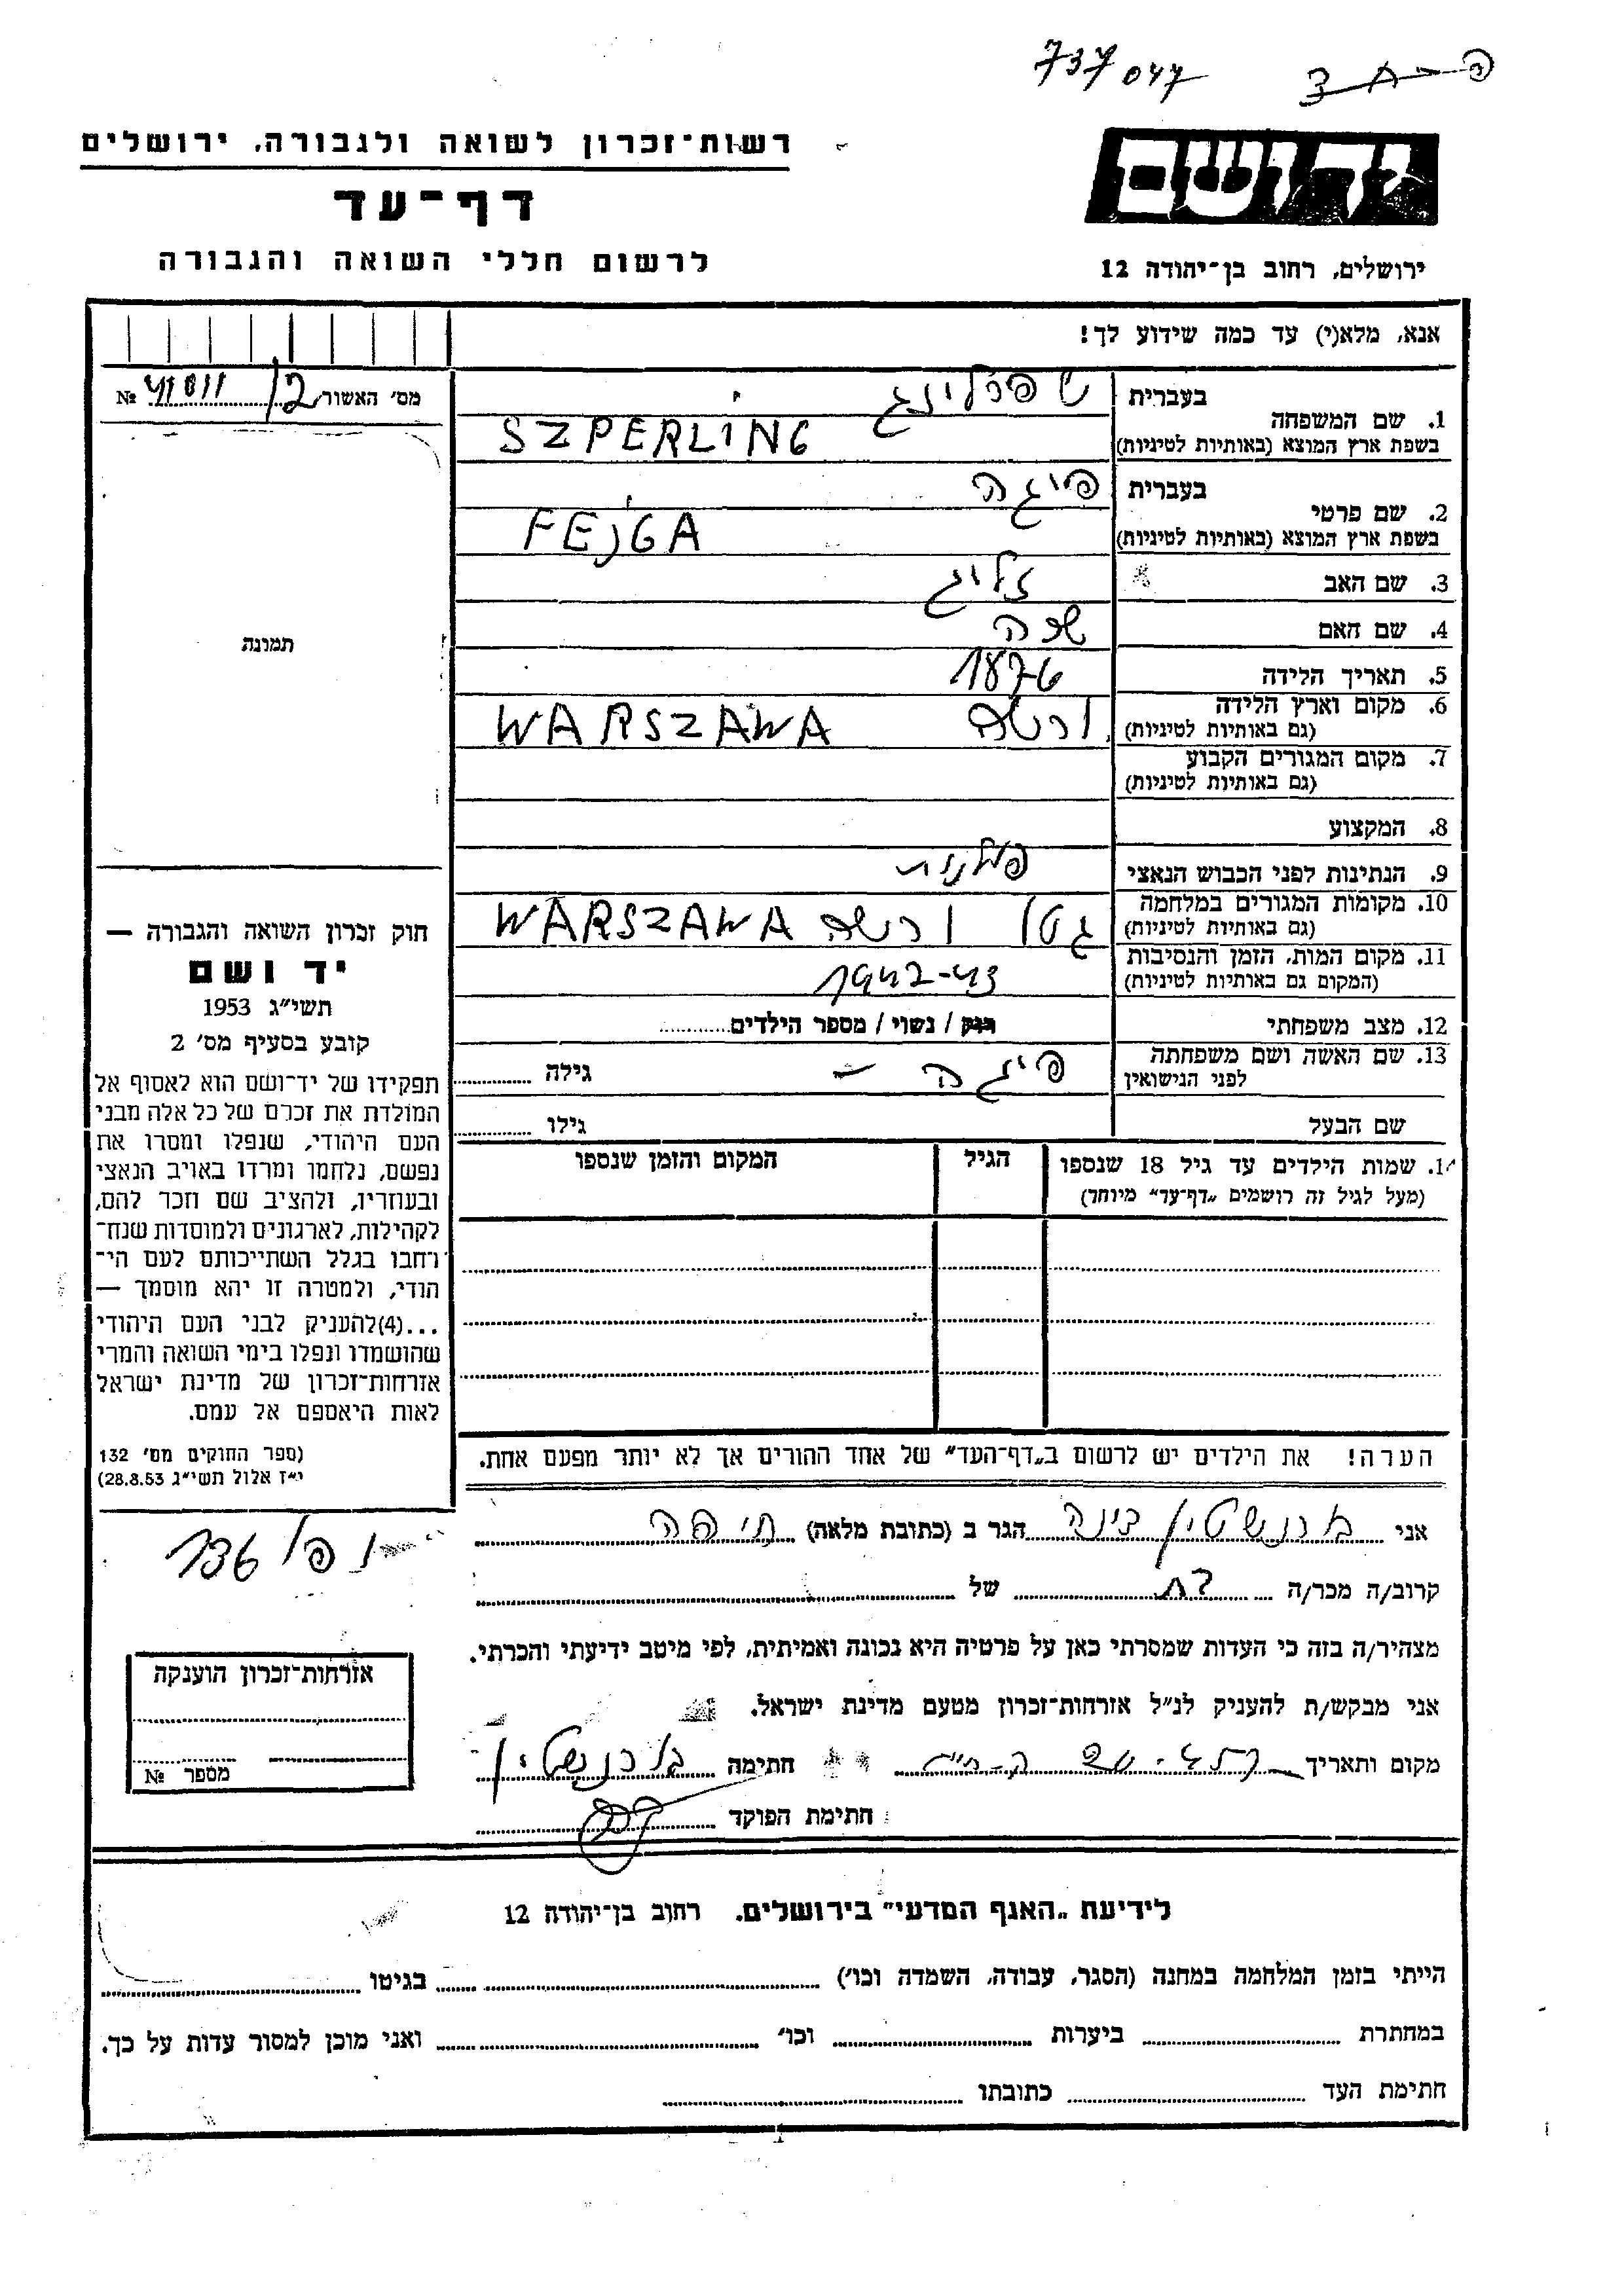 737 047
רשות־זכרון לשואה ולגבורה, ירושלים
דף־עד
לרשום חללי השואה והגבורה
יד ושם
ירושלים, רחוב בן־יהודה 12
אנא, מלא(י) עד כמה שידוע לך!
מס׳ האשור № 41011 /12
תמונה
1. שם המשפחה
בעברית שפרלינג
בשפת ארץ המוצא (באותיות לטיניות) SZPERLING
2. שם פרטי
בעברית פייגה
בשפת ארץ המוצא (באותיות לטיניות) FEJGA
3. שם האב זליג
4. שם האם
5. תאריך הלידה 1876
6. מקום וארץ הלידה (גם באותיות לטיניות) ורשה WARSZAWA
7. מקום המגורים הקבוע (גם באותיות לטיניות)
8. המקצוע
9. הנתינות לפני הכבוש הנאצי פולנית
10. מקומות המגורים במלחמה (גם באותיות לטיניות) גטו ורשה WARSZAWA
11. מקום המות, הזמן והנסיבות (המקום גם באותיות לטיניות) 1942-43
12. מצב משפחתי רווק / נשוי / מספר הילדים
13. שם האשה ושם משפחתה לפני הנישואין פייגה - גילה
שם הבעל גילו
14. שמות הילדים עד גיל 18 שנספו
(מעל לגיל זה רושמים „דף־עד״ מיוחד)
הגיל
המקום והזמן שנספו
חוק זכרון השואה והגבורה —
יד ושם
תשי״ג 1953
קובע בסעיף מס׳ 2
תפקידו של יד־ושם הוא לאסוף אל
המולדת את זכרם של כל אלה מבני
העם היהודי, שנפלו ומסרו את
נפשם, נלחמו ומרדו באויב הנאצי
ובעוזריו, ולהציב שם וזכר להם,
לקהילות, לארגונים ולמוסדות שנח־
רחבו בגלל השתייכותם לעם הי־
הודי, ולמטרה זו יהא מוסמך —
...(4)להעניק לבני העם היהודי
שהושמדו ונפלו בימי השואה והמרי
אזרחות־זכרון של מדינת ישראל
לאות היאספם אל עמם.
(ספר החוקים מס׳ 132
י״ז אלול תשי״ג 28.8.53)
הערה! את הילדים יש לרשום ב„דף־העד״ של אחד ההורים אך לא יותר מפעם אחת.
אני ברנשטין דינה הגר ב (כתובת מלאה) חיפה
136
קרוב/ה מכר/ה בת של
מצהיר/ה בזה כי העדות שמסרתי כאן על פרטיה היא נכונה ואמיתית, לפי מיטב ידיעתי והכרתי.
אני מבקש/ת להעניק לנ״ל אזרחות־זכרון מטעם מדינת ישראל.
מקום ותאריך חתימה ברנשטין
חתימת הפוקד
אזרחות־זכרון הוענקה
מספר №
לידיעת „האגף המדעי״ בירושלים, רחוב בן־יהודה 12
הייתי בזמן המלחמה במחנה (הסגר, עבודה, השמדה וכו׳) בגיטו
במחתרת ביערות וכו׳ ואני מוכן למסור עדות על כך.
חתימת העד כתובתו